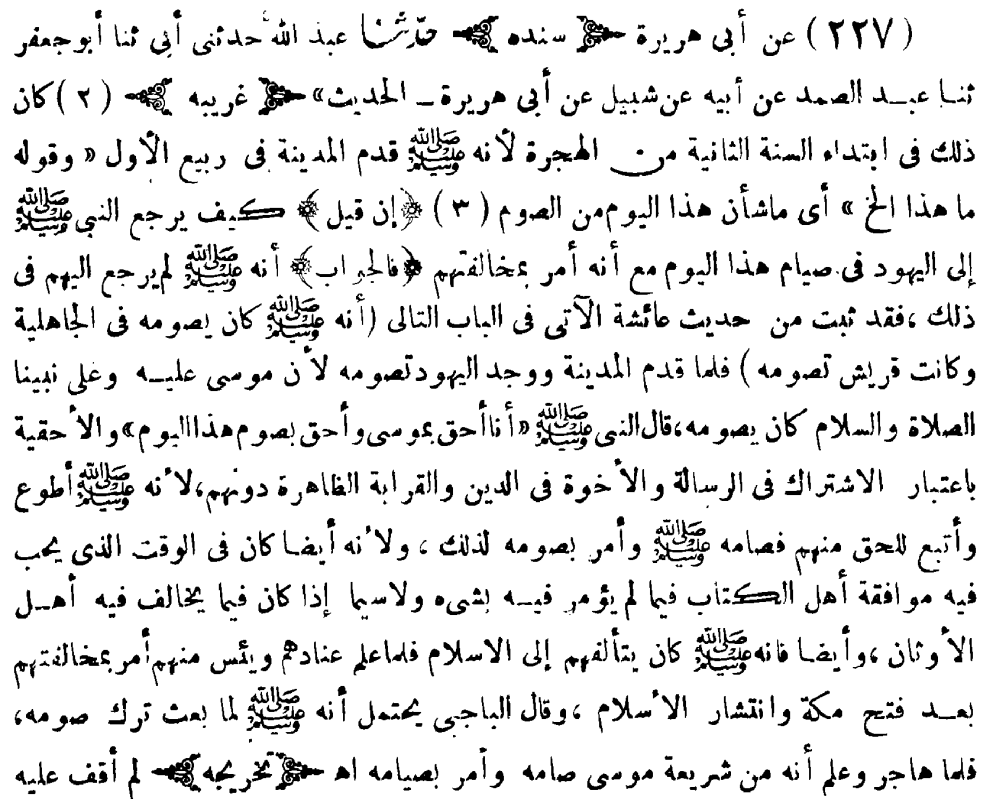 (٢٢٧) عن أبى هريرة ﴿سنده﴾ حدّثنا عبد الله حدثنى أبى ثنا أبو جعفر
ثنا عبد الصمد عن أبيه عن شبيل عن أبى هريرة ـ الحديث» ﴿غريبه﴾ (٢) كان
ذلك فى ابتداء السنة الثانية من الهجرة لأنه ﷺ قدم المدينة فى ربيع الأول «وقوله
ما هذا الخ» أى ماشأن هذا اليوم من الصوم (٣) ﴿إن قيل﴾ كيف يرجع النبى ﷺ
إلى اليهود فى صيام هذا اليوم مع أنه أمر بمخالفتهم ﴿فالجواب﴾ أنه ﷺ لم يرجع اليهم فى
ذلك ،فقد ثبت من حديث عائشة الآتى فى الباب التالى (أنه ﷺ كان يصومه فى الجاهلية
وكانت قريش تصومه) فلما قدم المدينة ووجد اليهود تصومه لأن موسى عليه وعلى نبينا
الصلاة والسلام كان يصومه،قال النبى ﷺ «أنا أحق بموسى وأحق بصوم هذا اليوم» والأحقية
باعتبار الاشتراك فى الرسالة والأخوة فى الدين والقرابة الظاهرة دونهم،لأنه ﷺ أطوع
وأتبع للحق منهم فصامه ﷺ وأمر بصومه لذلك ، ولأنه أيضا كان فى الوقت الذى يحب
فيه موافقة أهل الكتاب فيما لم يؤمر فيه بشىء ولاسيما إذا كان فيما يخالف فيه أهل
الأوثان ،وأيضا فانه ﷺ كان يتألفهم إلى الاسلام فلما علم عنادهم ويئس منهم أمر بمخالفتهم
بعد فتح مكة وانتشار الأسلام ،وقال الباجى يحتمل أنه ﷺ لما بعث ترك صومه،
فلما هاجر وعلم أنه من شريعة موسى صامه وأمر بصيامه اهـ ﴿تخريجه﴾ لم أقف عليه